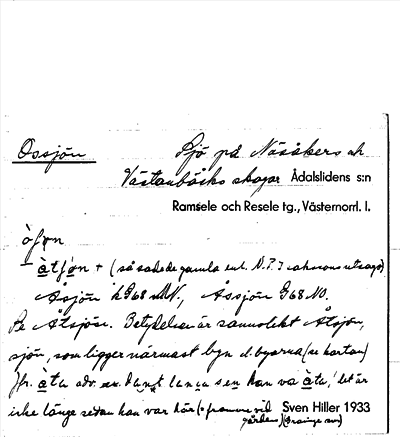 Ossjön Sjö på Näsåkers och
Västanbäcks skogar Ådalslidens s:n
Ramsele och Resele tg., Västernorrl. l.
òʃøn
àtʃøn + (så sade de gamla enl. N.P.
Åsjön hG68 Åssjön G68 NO.
Se Åtsjön. Betydelsen är sannolikt Åtsjön,
sjön, som ligger närmast byn l. byarna (se kartan)
Jfr. àta adv. ex. länge sen han va àta, 'det är
icke länge sedan han var här (= framme vid Sven Hiller 1933
gården)